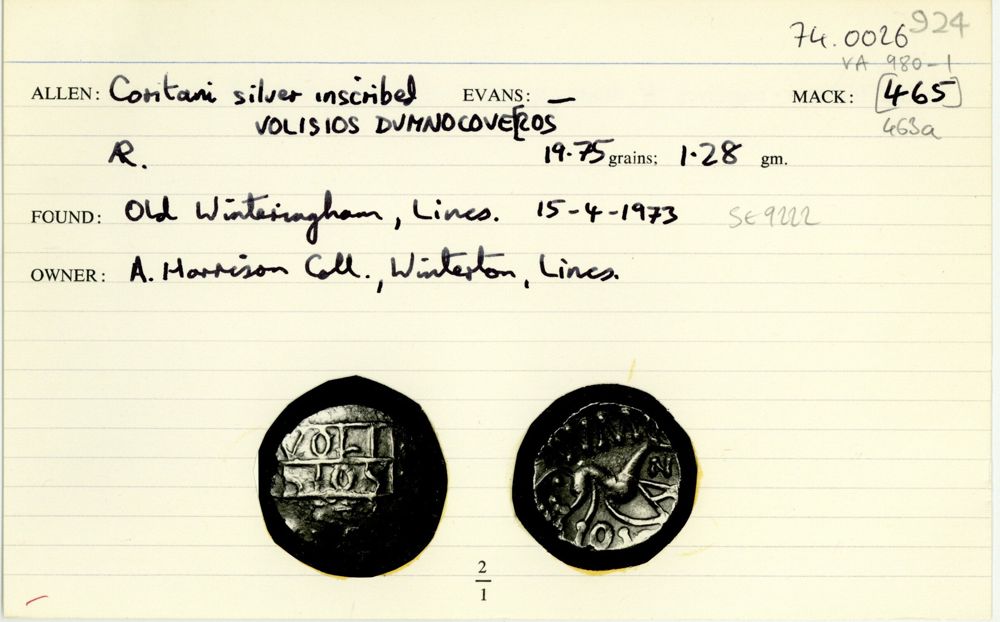 924
74.0026
VA 980-1
ALLEN: Coritani silver inscribed EVANS: — MACK: [465]
VOLISIOS DVMNOCOVE[ROS 463a
AR. 19.75 grains; 1.28 gm.
FOUND: Old Winteringham, Lincs. 15-4-1973 SE9222
OWNER: A. Harrison Coll., Winterton, Lincs.
VOLI
SIOS
2
1